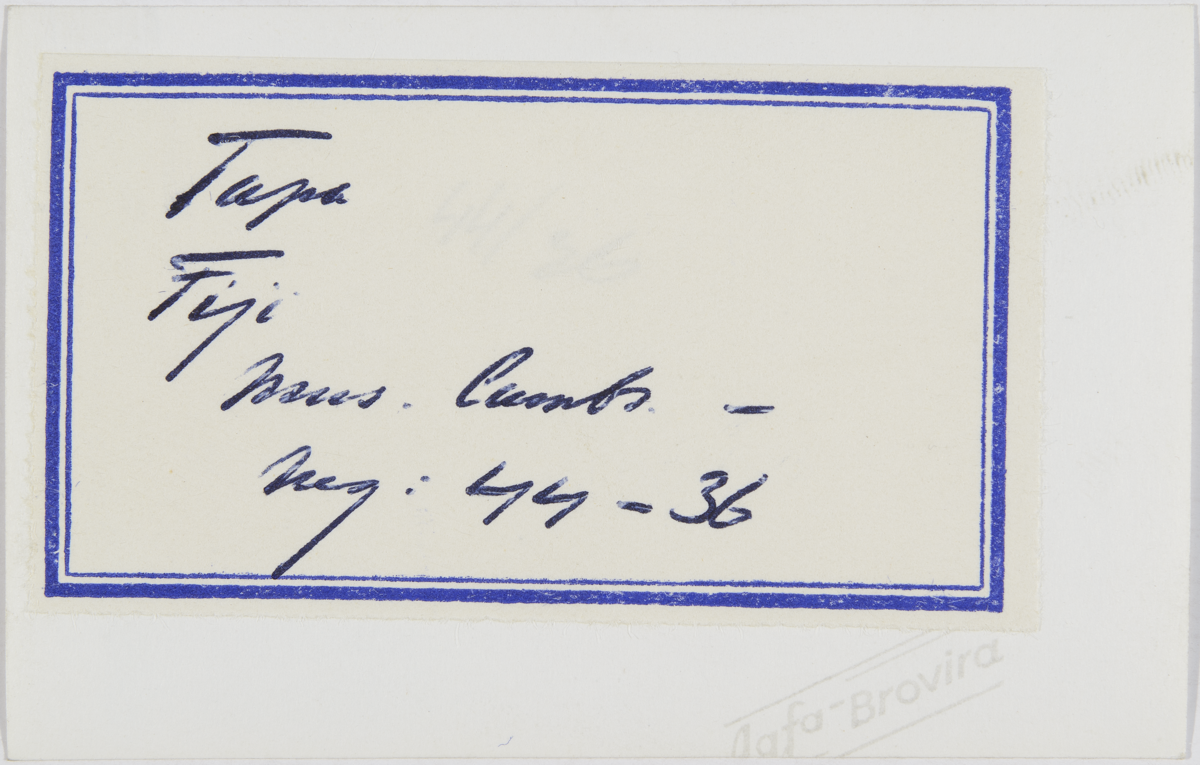 Tapa
Fiji
Mus. Cambr. -
Neg: 44 - 36
Agfa-Brovira